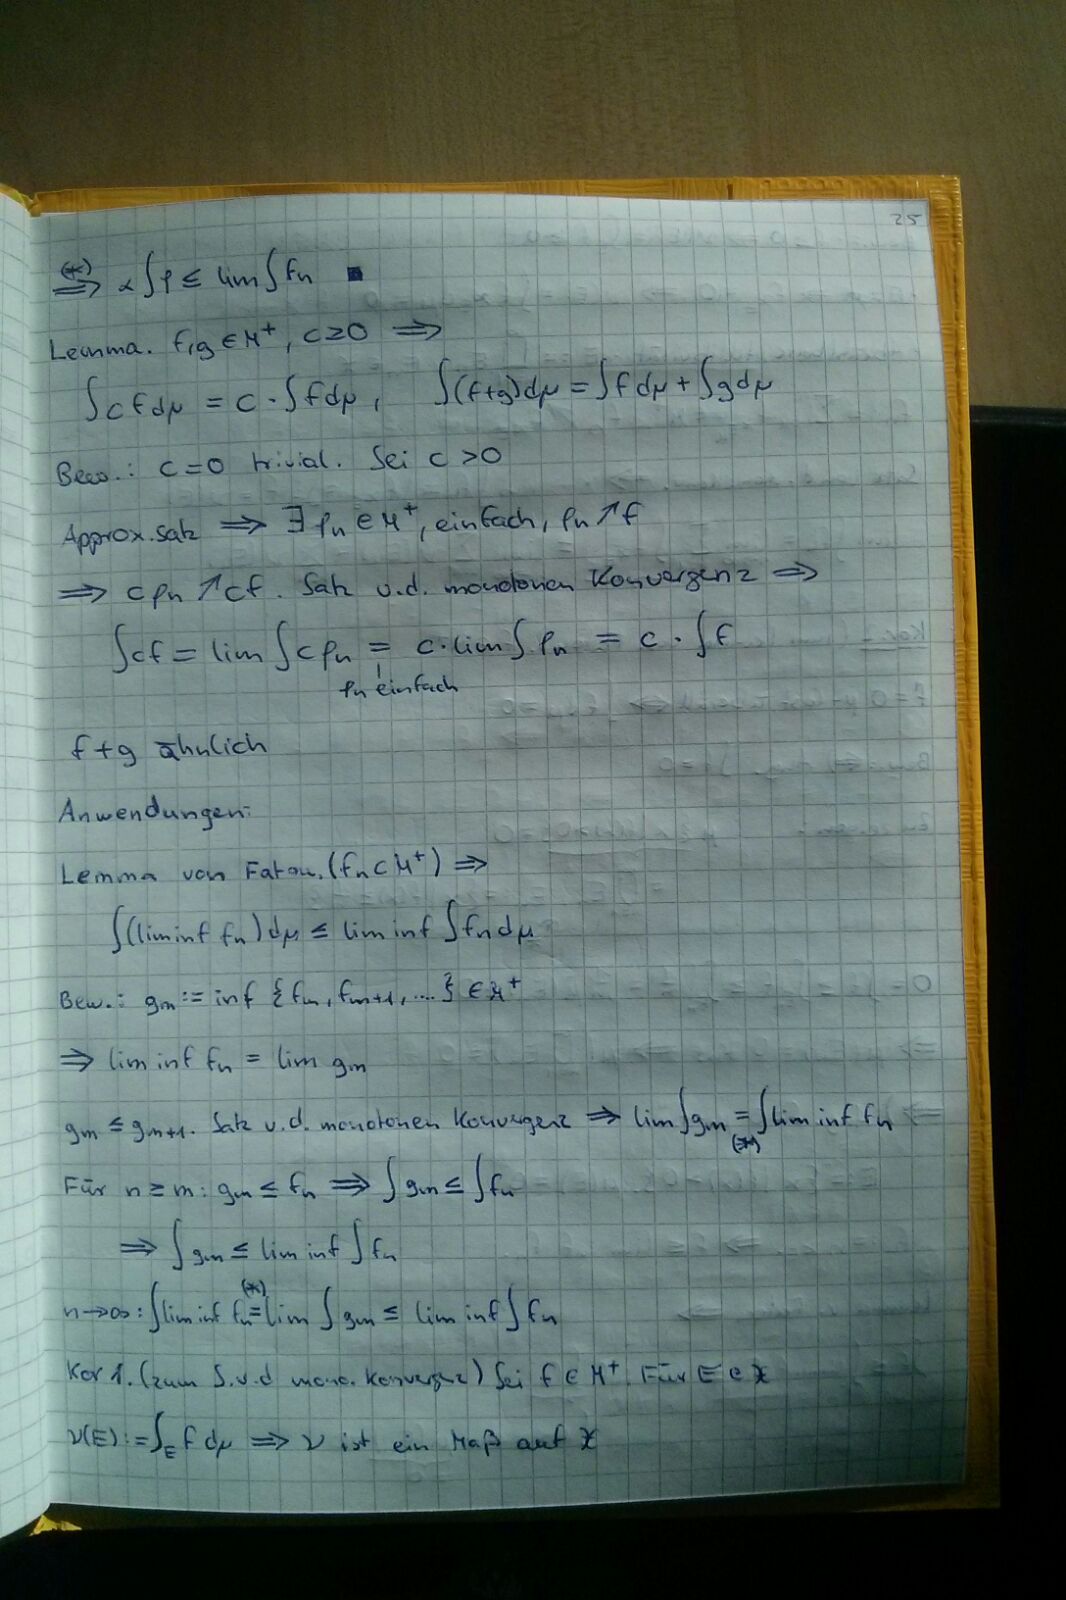 25
(*) ⟹ α ∫φ ≤ lim ∫ fn ■
Lemma. f,g ∈ M⁺, c≥0 ⟹
∫ c f dμ = c · ∫ f dμ, ∫(f+g)dμ = ∫f dμ + ∫g dμ
Bew.: c=0 trivial. Sei c>0
Approx.satz ⟹ ∃ φn ∈ M⁺, einfach, φn ↗ f
⟹ cφn ↗ cf. Satz v.d. monotonen Konvergenz ⟹
∫cf = lim ∫cφn = c·lim ∫ φn = c · ∫f
φn einfach
f+g ähnlich
Anwendungen:
Lemma von Fatou. (fn ⊂ M⁺) ⟹
∫(lim inf fn) dμ ≤ lim inf ∫ fn dμ
Bew.: gm := inf {fm, fm+1, ....} ∈ M⁺
⟹ lim inf fn = lim gm
gm ≤ gm+1. Satz v.d. monotonen Konvergenz ⟹ lim ∫gm = ∫lim inf fn
(*)
Für n ≥ m: gm ≤ fn ⟹ ∫ gm ≤ ∫fn
⟹ ∫ gm ≤ lim inf ∫ fn
n→∞: ∫lim inf fn (*)= lim ∫ gm ≤ lim inf ∫ fn
Kor 1. (zum S.v.d mono. Konvergenz) Sei f ∈ M⁺. Für E ∈ X
ν(E) := ∫E f dμ ⟹ ν ist ein Maß auf X